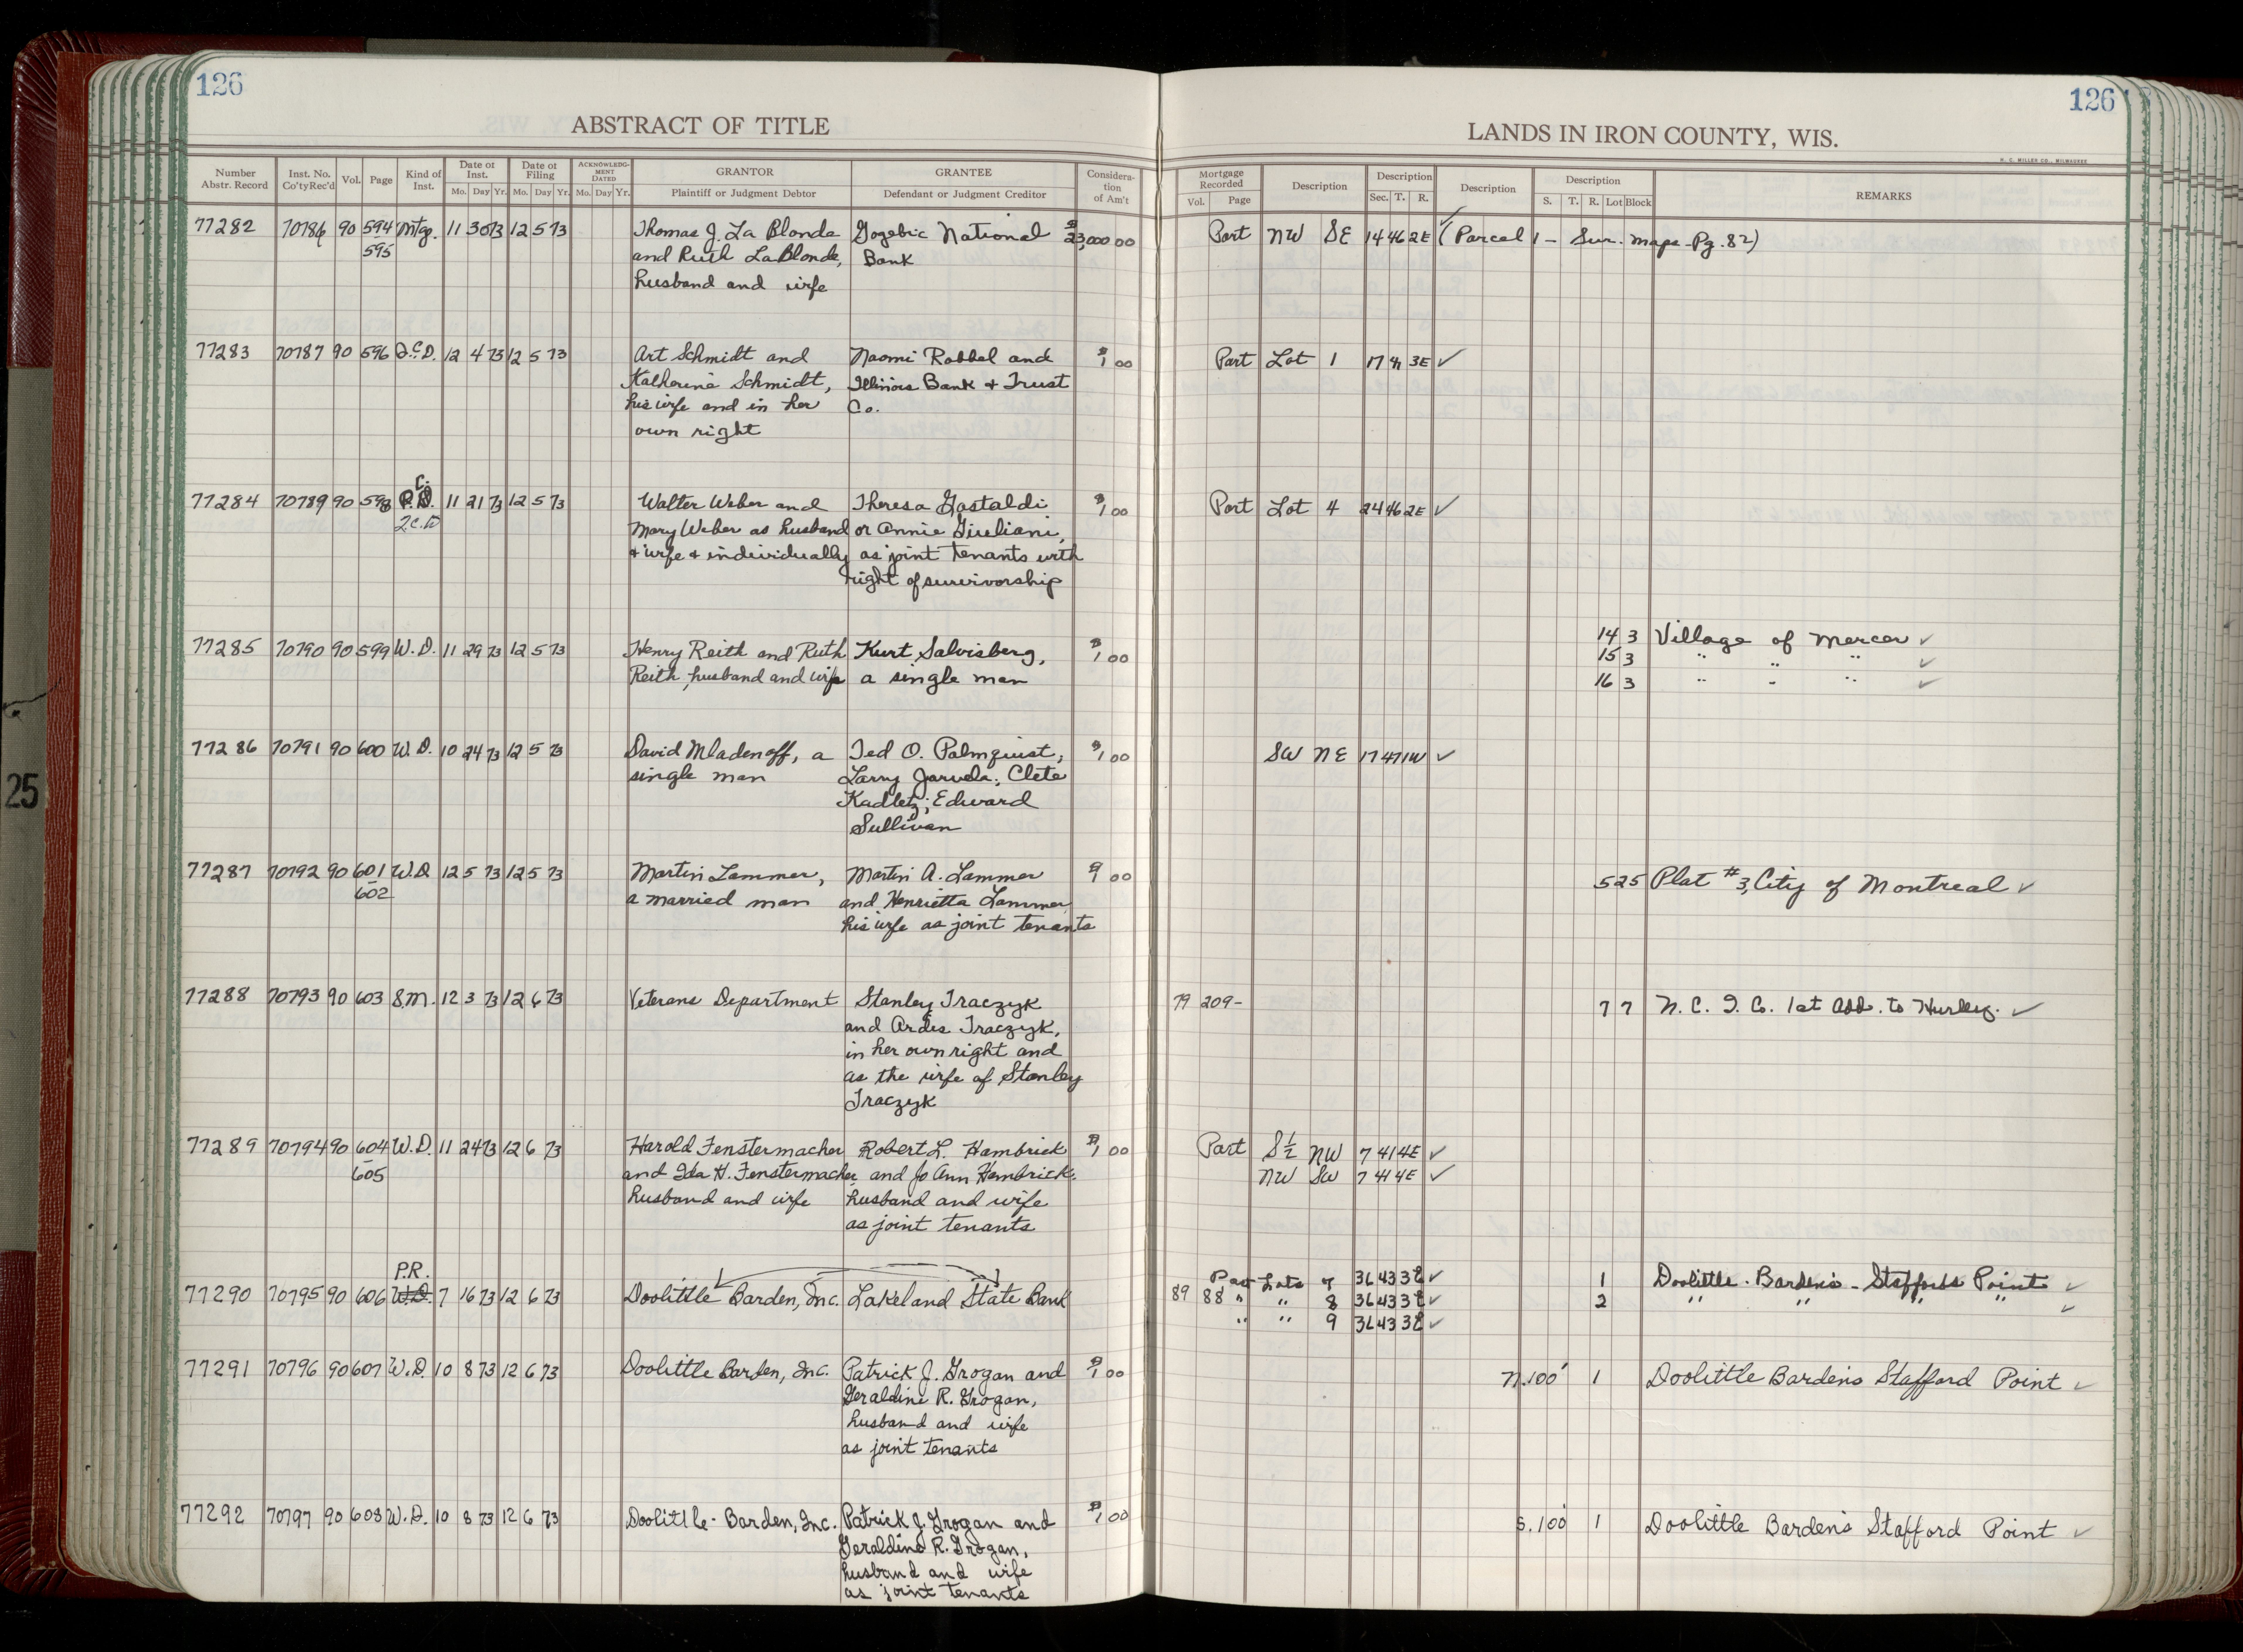 126
126
ABSTRACT OF TITLE
LANDS IN IRON COUNTY, WIS.
H. C. MILLER CO., MILWAUKEE
Number Abstr. Record
Inst. No. Co'ty Rec'd
Vol.
Page
Kind of Inst.
Date of Inst.
Mo. Day Yr.
Date of Filing
Mo. Day Yr.
ACKNOWLEDGMENT DATED
Mo. Day Yr.
GRANTOR
Plaintiff or Judgment Debtor
GRANTEE
Defendant or Judgment Creditor
Consideration of Am't
Mortgage Recorded
Vol. Page
Description
Description
Sec. T. R.
Description
Description
S. T. R. Lot Block
REMARKS
77282 70786 90 594 Mtg. 11 30 73 12 5 73 Thomas J. La Blonde Gogebic National $23,000 00 Part NW SE 14 46 2E ✓ (Parcel 1 - Sur. maps - Pg. 82)
595 and Ruth LaBlonde, Bank
husband and wife
77283 70787 90 596 Q.C.D. 12 4 73 12 5 73 Art Schmidt and Naomi Robbel and $1 00 Part Lot 1 17 41 3E ✓
Katherine Schmidt, Illinois Bank + Trust
his wife and in her Co.
own right
C.
77284 70789 90 598 P.D. 11 21 73 12 5 73 Walter Weber and Theresa Gastaldi $1 00 Part Lot 4 24 46 2E ✓
Mary Weber as husband or Annie Giuliani,
+ wife + individually as joint tenants with
right of survivorship
77285 70790 90 599 W.D. 11 29 73 12 5 73 Henry Reith and Ruth Kurt Salvisberg, $1 00 14 3 Village of Mercer ✓
Reith, husband and wife a single man 15 3 " " " ✓
16 3 " " " ✓
77286 70791 90 600 W.D. 10 24 73 12 5 73 David Mladenoff, a Ted O. Palmquist, $1 00 SW NE 17 47 1W ✓
single man Larry Jarvela; Clete
Kadletz; Edward
Sullivan
77287 70792 90 601 W.D. 12 5 73 12 5 73 Martin Lammer, Martin A. Lammer $1 00 5 25 Plat #3, City of Montreal ✓
602 a married man and Henrietta Lammer,
his wife as joint tenants
77288 70793 90 603 S.M. 12 3 73 12 6 73 Veterans Department Stanley Traczyk 79 209- 7 7 N. C. I. Co. 1st Add. to Hurley. ✓
and Ardis Traczyk,
in her own right and
as the wife of Stanley
Traczyk
77289 70794 90 604 W.D. 11 24 73 12 6 73 Harold Fenstermacher Robert L. Hambrick $1 00 Part S½ NW 7 41 4E ✓
605 and Ida H. Fenstermacher, and Jo Ann Hambrick, NW SW 7 41 4E ✓
husband and wife husband and wife
as joint tenants
P.R. Part Lots 7 36 43 3E ✓ 1 Doolittle-Barden's-Staffords Point ✓
77290 70795 90 606 W.D. 7 16 73 12 6 73 Doolittle Barden, Inc. Lakeland State Bank 89 88 " " 8 36 43 3E ✓ 2 " " " " ✓
" " 9 36 43 3E ✓
77291 70796 90 607 W.D. 10 8 73 12 6 73 Doolittle Barden, Inc. Patrick J. Grogan and $1 00 N.100' 1 Doolittle Bardens Stafford Point ✓
Geraldine R. Grogan,
husband and wife
as joint tenants
77292 70797 90 608 W.D. 10 8 73 12 6 73 Doolittle-Barden, Inc. Patrick J. Grogan and $1 00 S.100' 1 Doolittle Barden's Stafford Point ✓
Geraldine R. Grogan,
husband and wife
as joint tenants
25